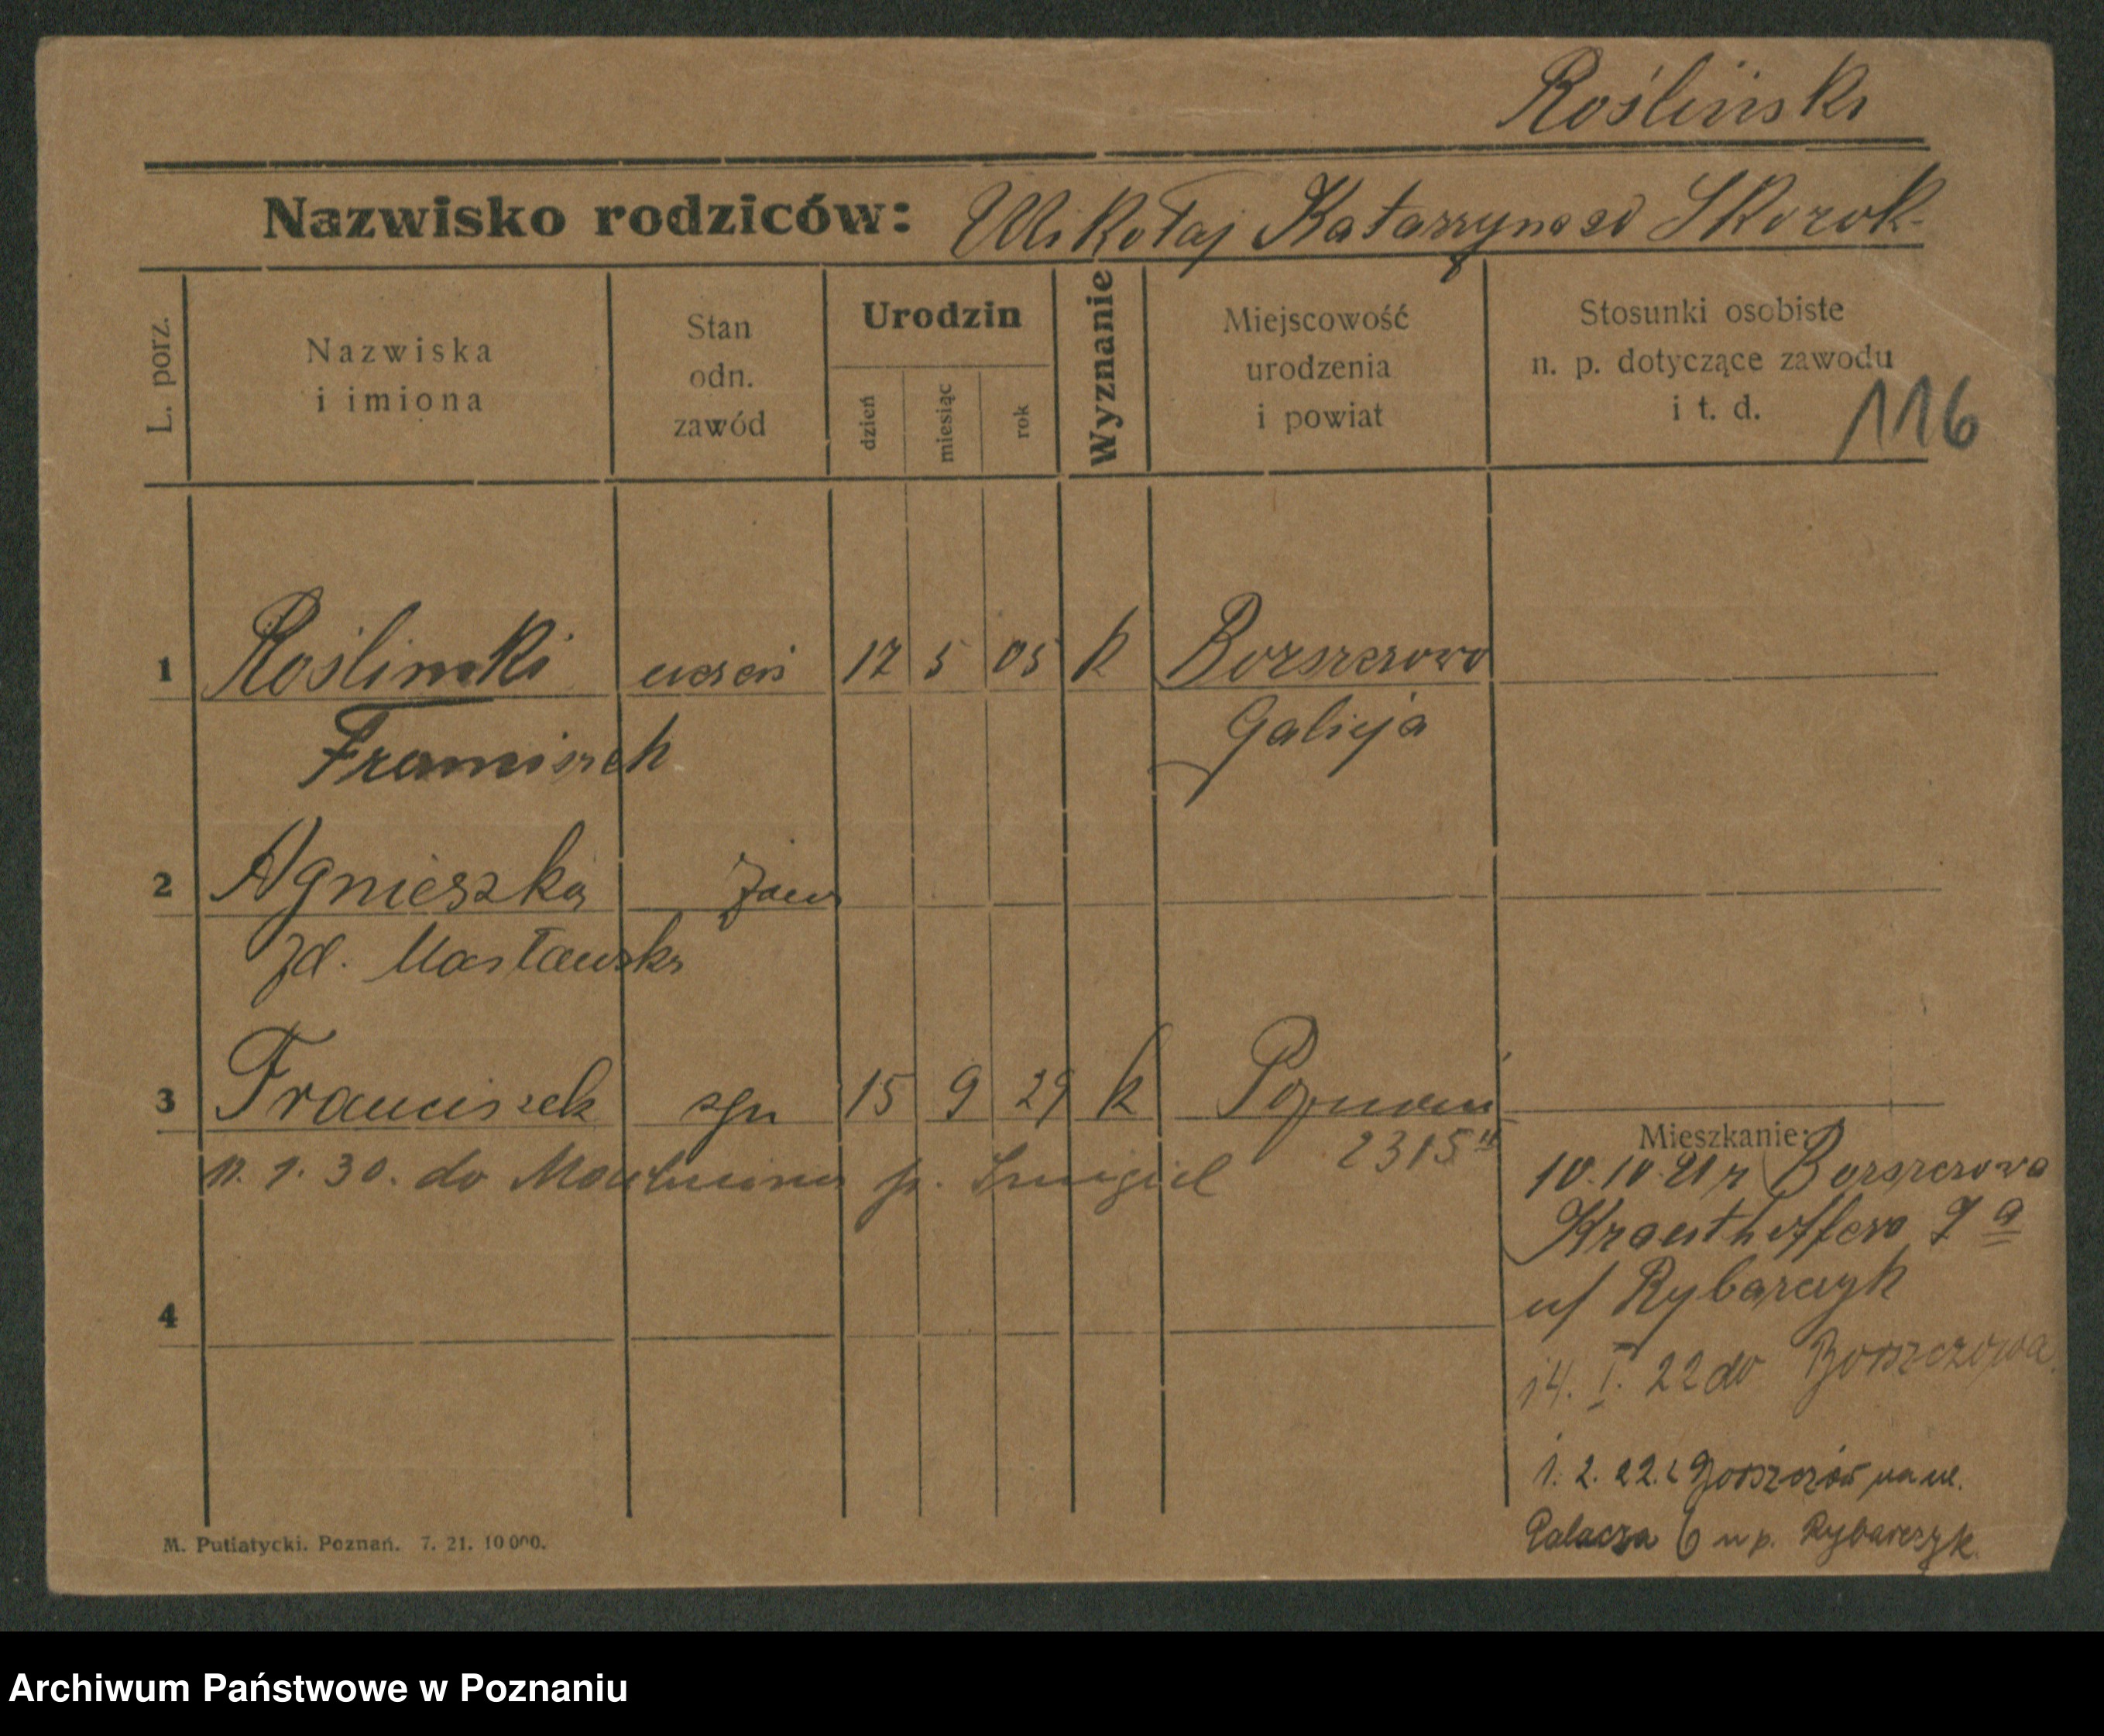 Rośliński
Nazwisko rodziców: Mikołaj Katarzyna zd Skorok-
L. porz.
Nazwiska
i imiona
Stan
odn.
zawód
Urodzin
dzień
miesiąc
rok
Wyznanie
Miejscowość
urodzenia
i powiat
Stosunki osobiste
n. p. dotyczące zawodu
i t. d.
116
1 Rośliński uczeń 17 5 05 k Borszczowo
Franciszek Galicja
2 Agnieszka żona
zd. Masławska
3 Franciszek syn 15 9 29 k Poznań
2315
11. 1. 30. do p. Śmigiel
Mieszkanie:
10.10.21 r Borszczowa
Krauthoffera 9 a
u/ Rybarczyk
4
14. I. 22 do Borszczowa
1. 2. 22. z Borszczów na ul.
Palacza 6 u p. Rybarczyk.
M. Putiatycki. Poznań. 7. 21. 10000.
Archiwum Państwowe w Poznaniu